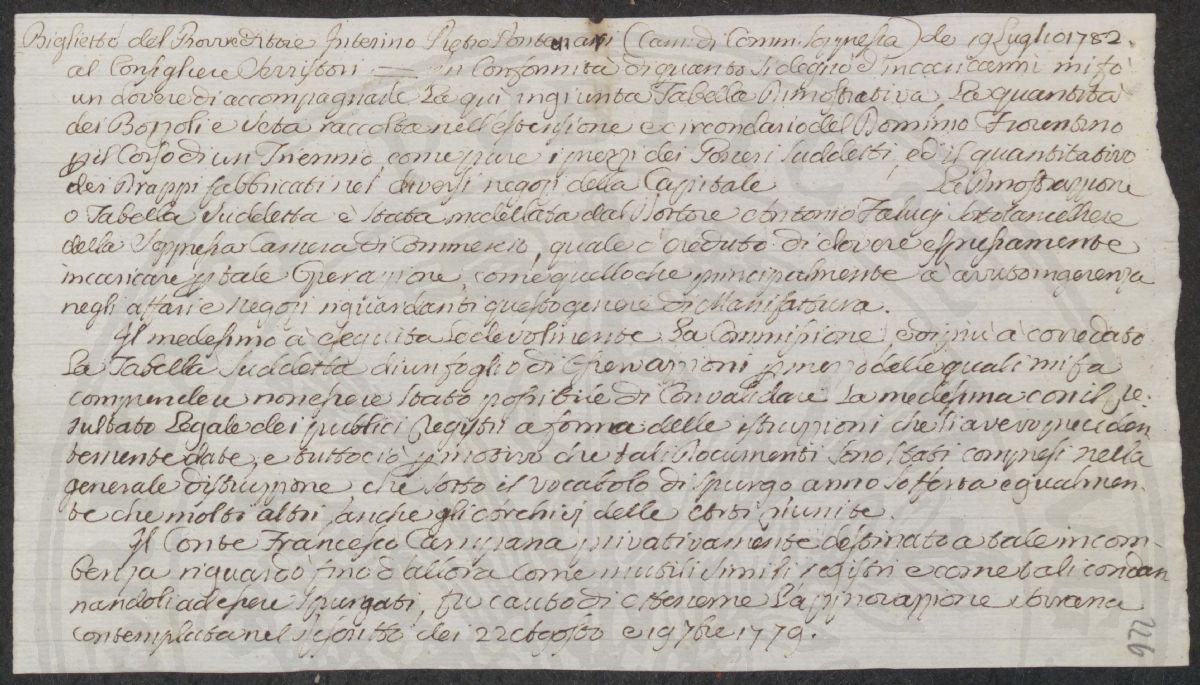 Biglietto del Provveditore Interino Pietro (Cam: di Comm: soppressa) de 19 Luglio 1782.
al Consigliere Serristori = In Conformità di quanto si degnò d'incaricarmi mi fo
un dovere di accompagnarle La qui ingiunta Tabella Dimostrativa La quantità
dei Bozzoli e Seta raccolta nell'estensione e circondario del Dominio Fiorentino
p il Corso di un Triennio come pure i prezzi dei Generi suddetti, ed il quantitativo
dei Drappi fabbricati nei diversi negozj della Capitale La Dimostrazione
o Tabella suddetta è stata modellata dal Dottore Antonio Faluci Sottocancelliere
della Soppressa Camera di Commercio, quale ò creduto di dovere espressamente
incaricare p tale Operazione, come quello che principalmente à avuto ingerenza
negli affari e Negozj riguardanti questo genere di Manifattura.
Il medesimo à eseguita lodevolmente La Commissione, e di più à corredato
La Tabella Suddetta di un foglio di Osservazioni p mezzo delle quali mi fa
comprendere non essere stato possibile di Convalidare La medesima con il re-
sultato Legale dei pubblici Registri a forma delle istruzioni che li avevo preceden
temente date, e tuttociò p motivo che tali Documenti sono stati compresi nella
generale distruzione, che sotto il vocabolo di spurgo anno sofferta egualmen-
te che molti altri, anche gli Archivj delle Arti riunite.
Il Conte Francesco privativamente destinato a tale incom-
benza riguardò fino d'allora come inutili simili registri e come tali condan
nandoli ad essere spurgati, fu cauto di ottenerne L'approvazione Sovrana
contemplata nel Rescritto dei 22 Agosto e 19 7bre 1779.
226